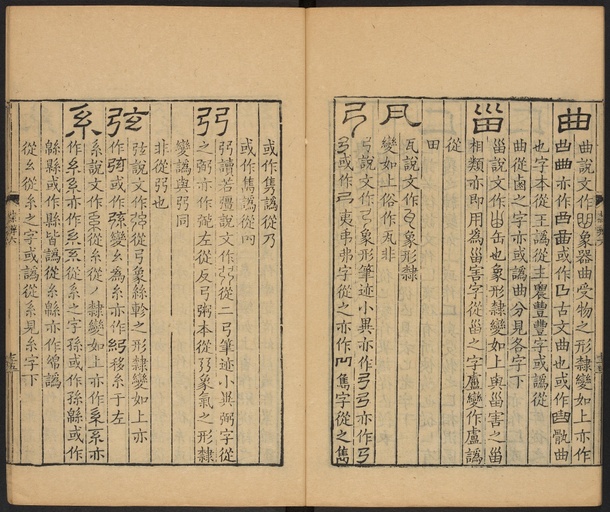 曲
曲說文作象器曲受物之形隸變如上亦作
亦作或作古文曲也或作骫曲
也字本從王譌從主農豐豐字或譌從
曲從齒之字亦或譌曲分見各字下
甾
甾說文作缶也象形隸變如上與甾害之甾
相類亦即用為甾害字從甾之字盧變作盧譌
從
田
瓦
瓦說文作象形隸
變如上俗作瓦非
弓
弓說文作弓象形筆迹小異亦作弓弓亦作弓
弓或作弓夷弗弟字從之亦作雋字從之雋
或作雋譌從乃
或作雋譌從
弜
弜讀若彊說文作從二弓筆迹小異弼字從
之弼亦作左從反弓粥本從弜象氣之形隸
變譌與弜同
非從弜也
弦
弦說文作從弓象絲軫之形隸變如上亦
作或作變幺為糸亦作移糸于左
系
系說文作從糸從丿隸變如上亦作系系亦
作系系亦作系系從系之字孫或作孫繇或作
緜縣或作縣皆譌從糸緜亦作綿譌
從幺從糸之字或譌從系見糸字下
隸辨六